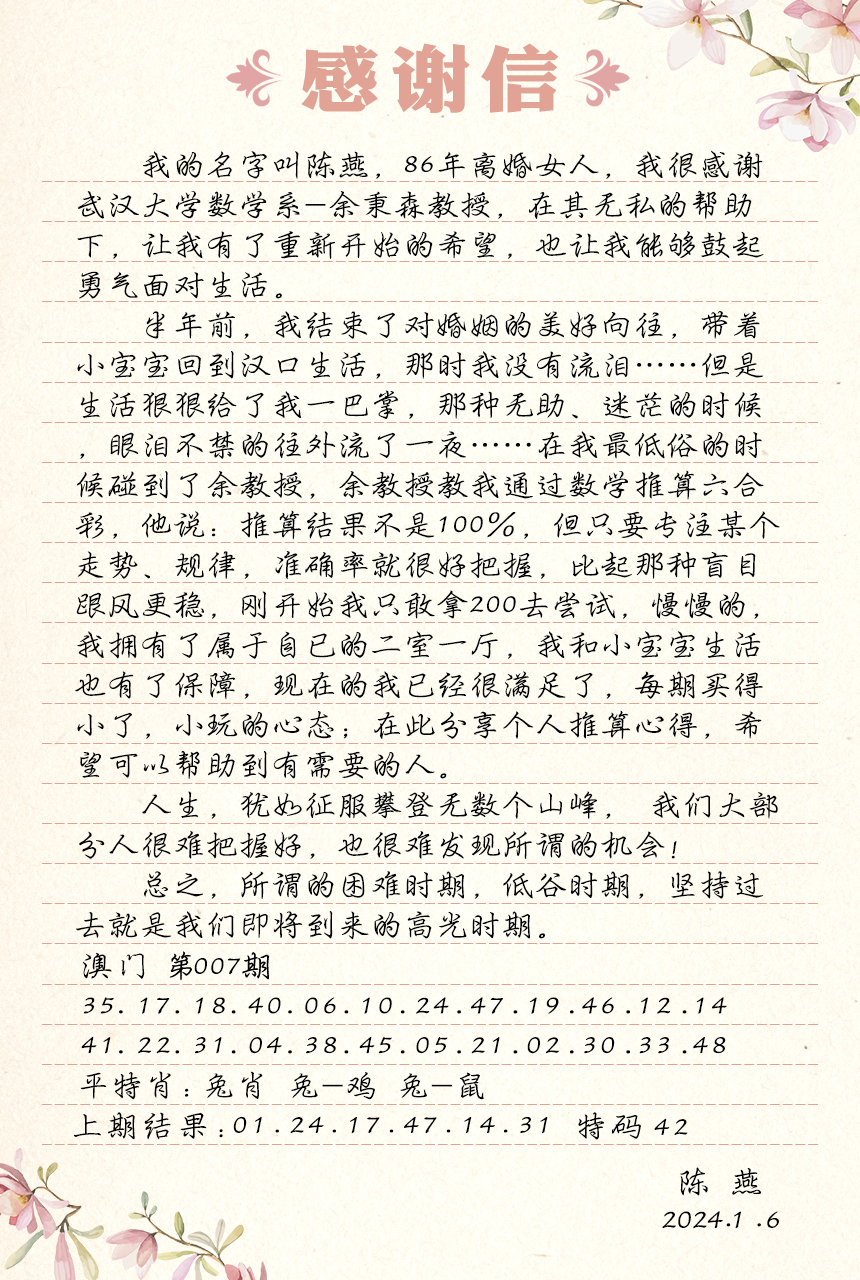 感谢信
我的名字叫陈燕，86年离婚女人，我很感谢
武汉大学数学系—余秉森教授，在其无私的帮助
下，让我有了重新开始的希望，也让我能够鼓起
勇气面对生活。
半年前，我结束了对婚姻的美好向往，带着
小宝宝回到汉口生活，那时我没有流泪……但是
生活狠狠给了我一巴掌，那种无助、迷茫的时候
，眼泪不禁的往外流了一夜……在我最低俗的时
候碰到了余教授，余教授教我通过数学推算六合
彩，他说：推算结果不是100%，但只要专注某个
走势、规律，准确率就很好把握，比起那种盲目
跟风更稳，刚开始我只敢拿200去尝试，慢慢的，
我拥有了属于自已的二室一厅，我和小宝宝生活
也有了保障，现在的我已经很满足了，每期买得
小了，小玩的心态；在此分享个人推算心得，希
望可以帮助到有需要的人。
人生，犹如征服攀登无数个山峰， 我们大部
分人很难把握好，也很难发现所谓的机会！
总之，所谓的困难时期，低谷时期，坚持过
去就是我们即将到来的高光时期。
澳门 第007期
35.17.18.40.06.10.24.47.19.46.12.14
41.22.31.04.38.45.05.21.02.30.33.48
平特肖：兔肖 兔—鸡 兔—鼠
上期结果：01.24.17.47.14.31 特码 42
陈 燕
2024.1.6